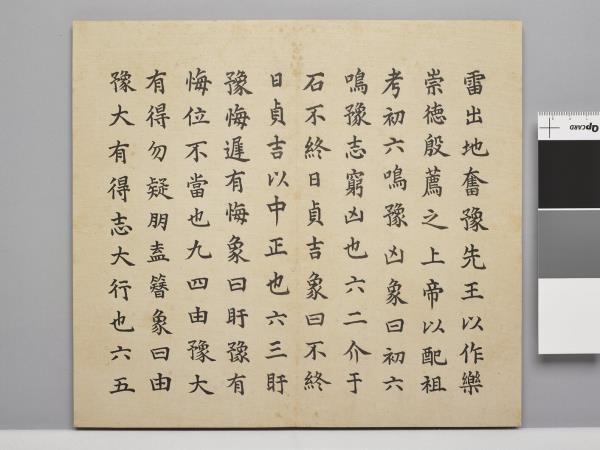 雷出地奮豫先王以作樂
崇德殷薦之上帝以配祖
考初六鳴豫凶象曰初六
鳴豫志窮凶也六二介于
石不終日貞吉象曰不終
日貞吉以中正也六三盱
豫悔遲有悔象曰盱豫有
悔位不當也九四由豫大
有得勿疑朋盍簪象曰由
豫大有得志大行也六五
QpCARD